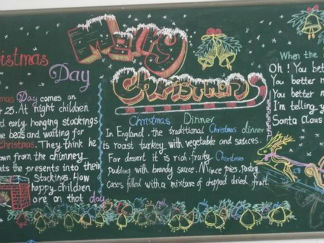 Christmas
Day
Christmas Day comes on
25. At night children
early, hanging stockings
beds and waiting for
Christmas. They think he
down from the chimney
puts the presents into their
stockings. How
happy children
are on that day
Merry
Christmas
Christmas Dinner
In England, the traditional Christmas dinner
is roast turkey with vegetable and sauces.
For dessert it is rich, fruity Christmas
Pudding with brandy sauce. Mince pies, pastry
cases filled with a mixture of chopped dried fruit.
When the
Oh! You be
You better n
You better
I'm telling y
Santa Claus